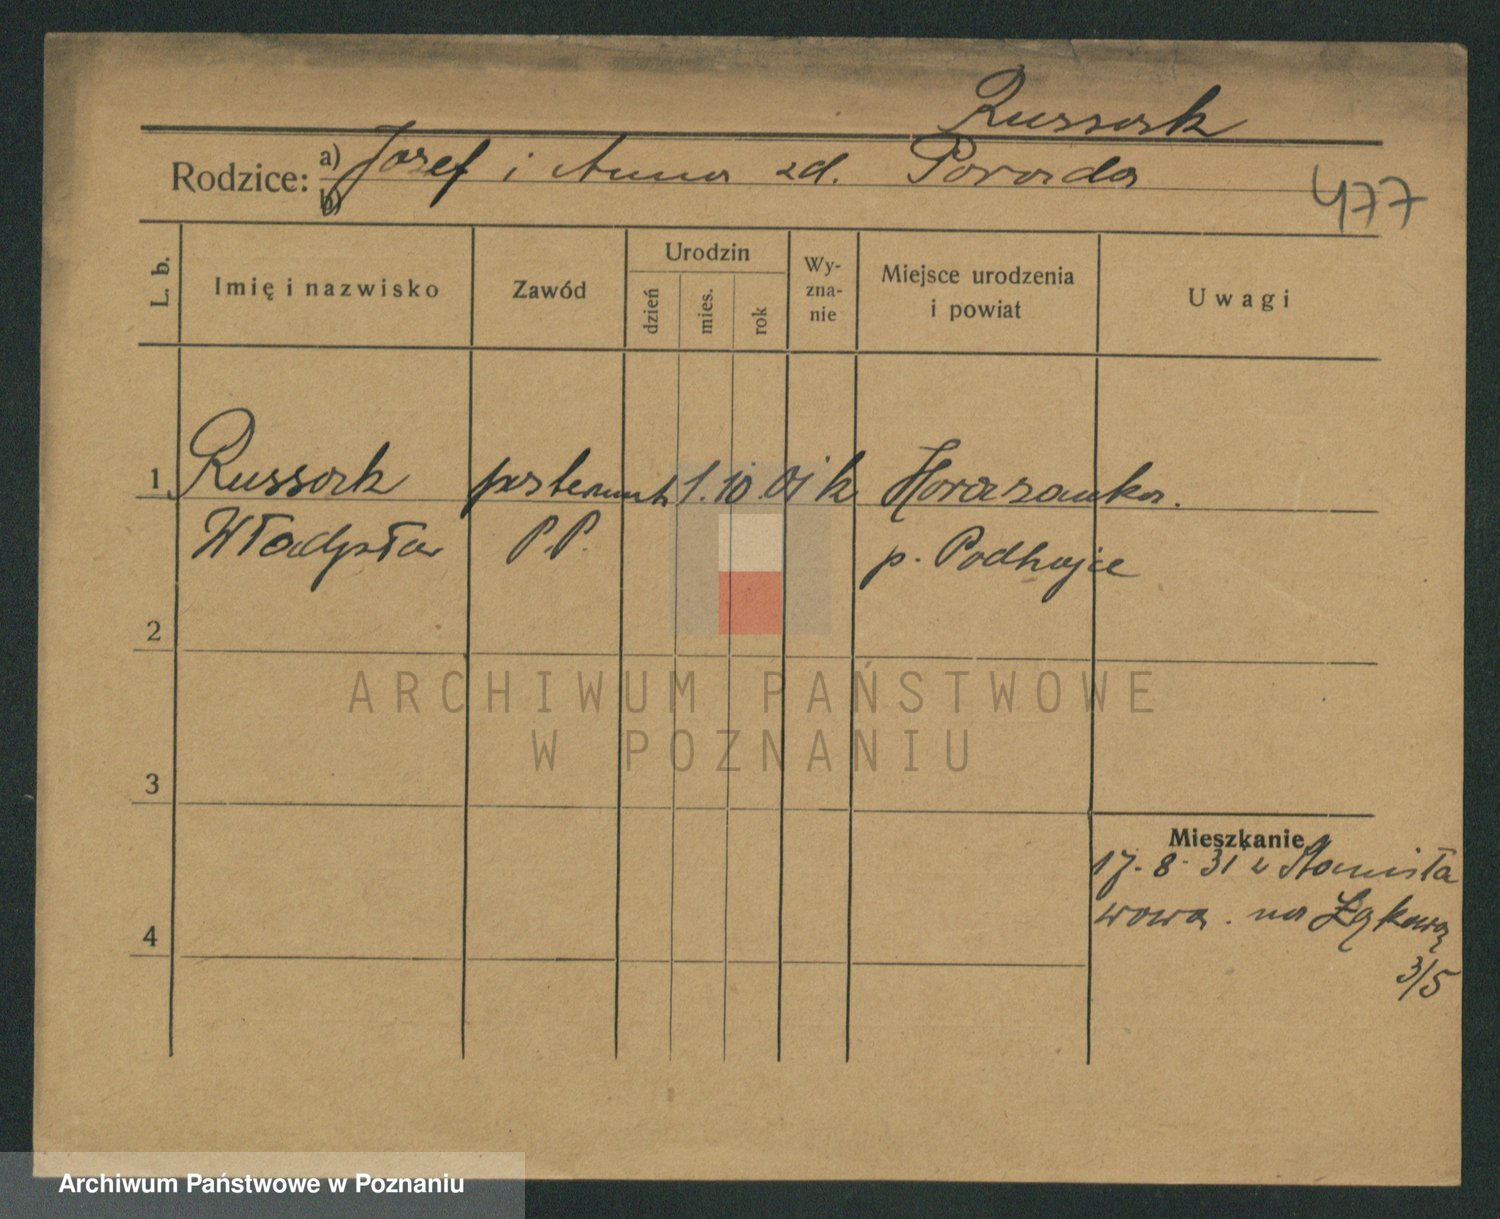 Russork
Rodzice: a) Józef i Anna zd. Pororda
b)
477
L. b.
Imię i nazwisko
Zawód
Urodzin
dzień
mies.
rok
Wy-
zna-
nie
Miejsce urodzenia
i powiat
Uwagi
1 Russork posterunk 1. 10. 01 k Horożanka.
Władysław P.P. p. Podhajce
2
3
4
Mieszkanie
17. 8. 31 z Stanisła
wowa. na Łąkową
3/5
ARCHIWUM PAŃSTWOWE
W POZNANIU
Archiwum Państwowe w Poznaniu